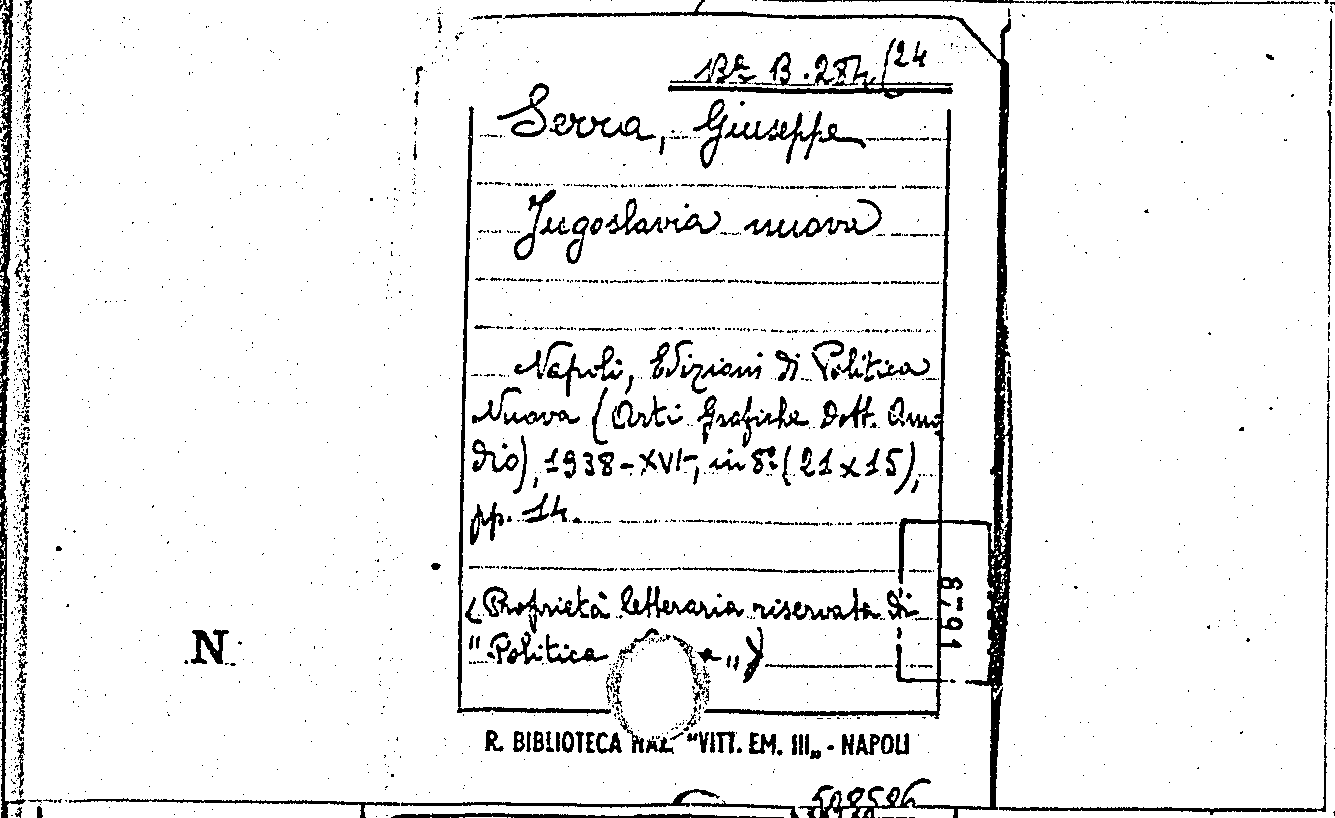 Bª B. 284/24
Serra, Giuseppe
Jugoslavia nuova
Napoli, Edizioni di Politica
Nuova (Arti Grafiche Dott. Amo
dio), 1938-XVI-, in 8º (21x15),
pp. 14.
(Proprietà letteraria riservata di
"Politica a")
8791
N
R. BIBLIOTECA NAZ. "VITT. EM. III„ - NAPOLI